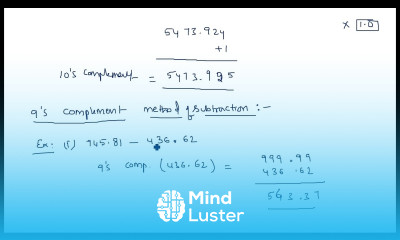 5473.924
+1
× 1.0
10's complement = 5473.925
9's complement method of subtraction :-
Ex: (1) 745.81 – 436.62
9's comp. (436.62) = 999.99
436.62
563.37
Mind
Luster